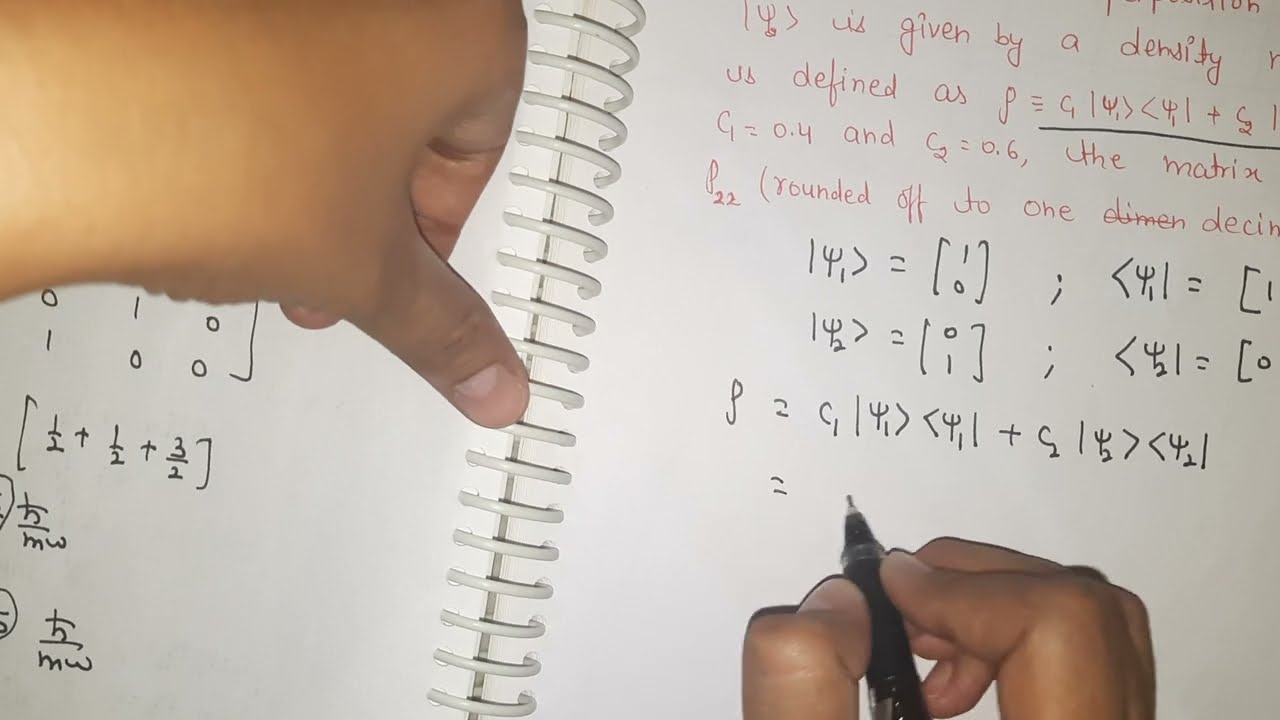 0 1 0
1 0 0
[1/2 + 1/2 + 3/2]
ℏ/mω
ℏ/mω
|ψ₂> is given by a density
us defined as ρ ≡ C₁ |ψ₁><ψ₁| + C₂ |
C₁ = 0.4 and C₂ = 0.6, the matrix
ρ₂₂ (rounded off to one dimen decim
|ψ₁> = [1 0] ; <ψ₁| = [1
|ψ₂> = [0 1] ; <ψ₂| = [0
ρ = C₁ |ψ₁><ψ₁| + C₂ |ψ₂><ψ₂|
=